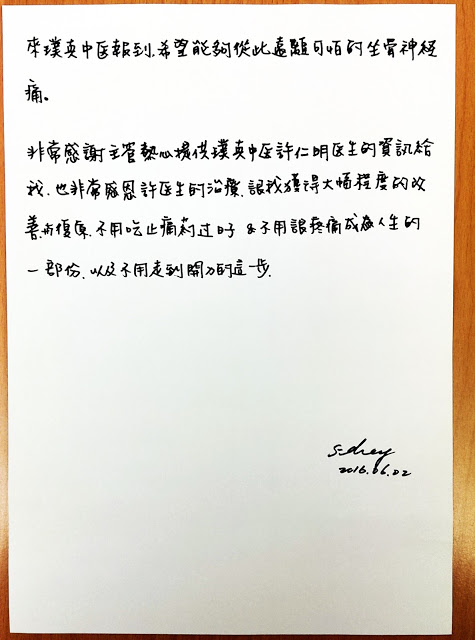 來璞英中医報到,希望能夠從此遠離可怕的坐骨神經
痛。
非常感謝主管熱心提供璞英中医許仁明医生的資訊給
我.也非常感恩許医生的治療,讓我獲得大幅程度的改
善與復原.不用吃止痛药过日子 & 不用讓疼痛成為人生的
一部份.以及不用走到開刀的這一步.
2016.06.02